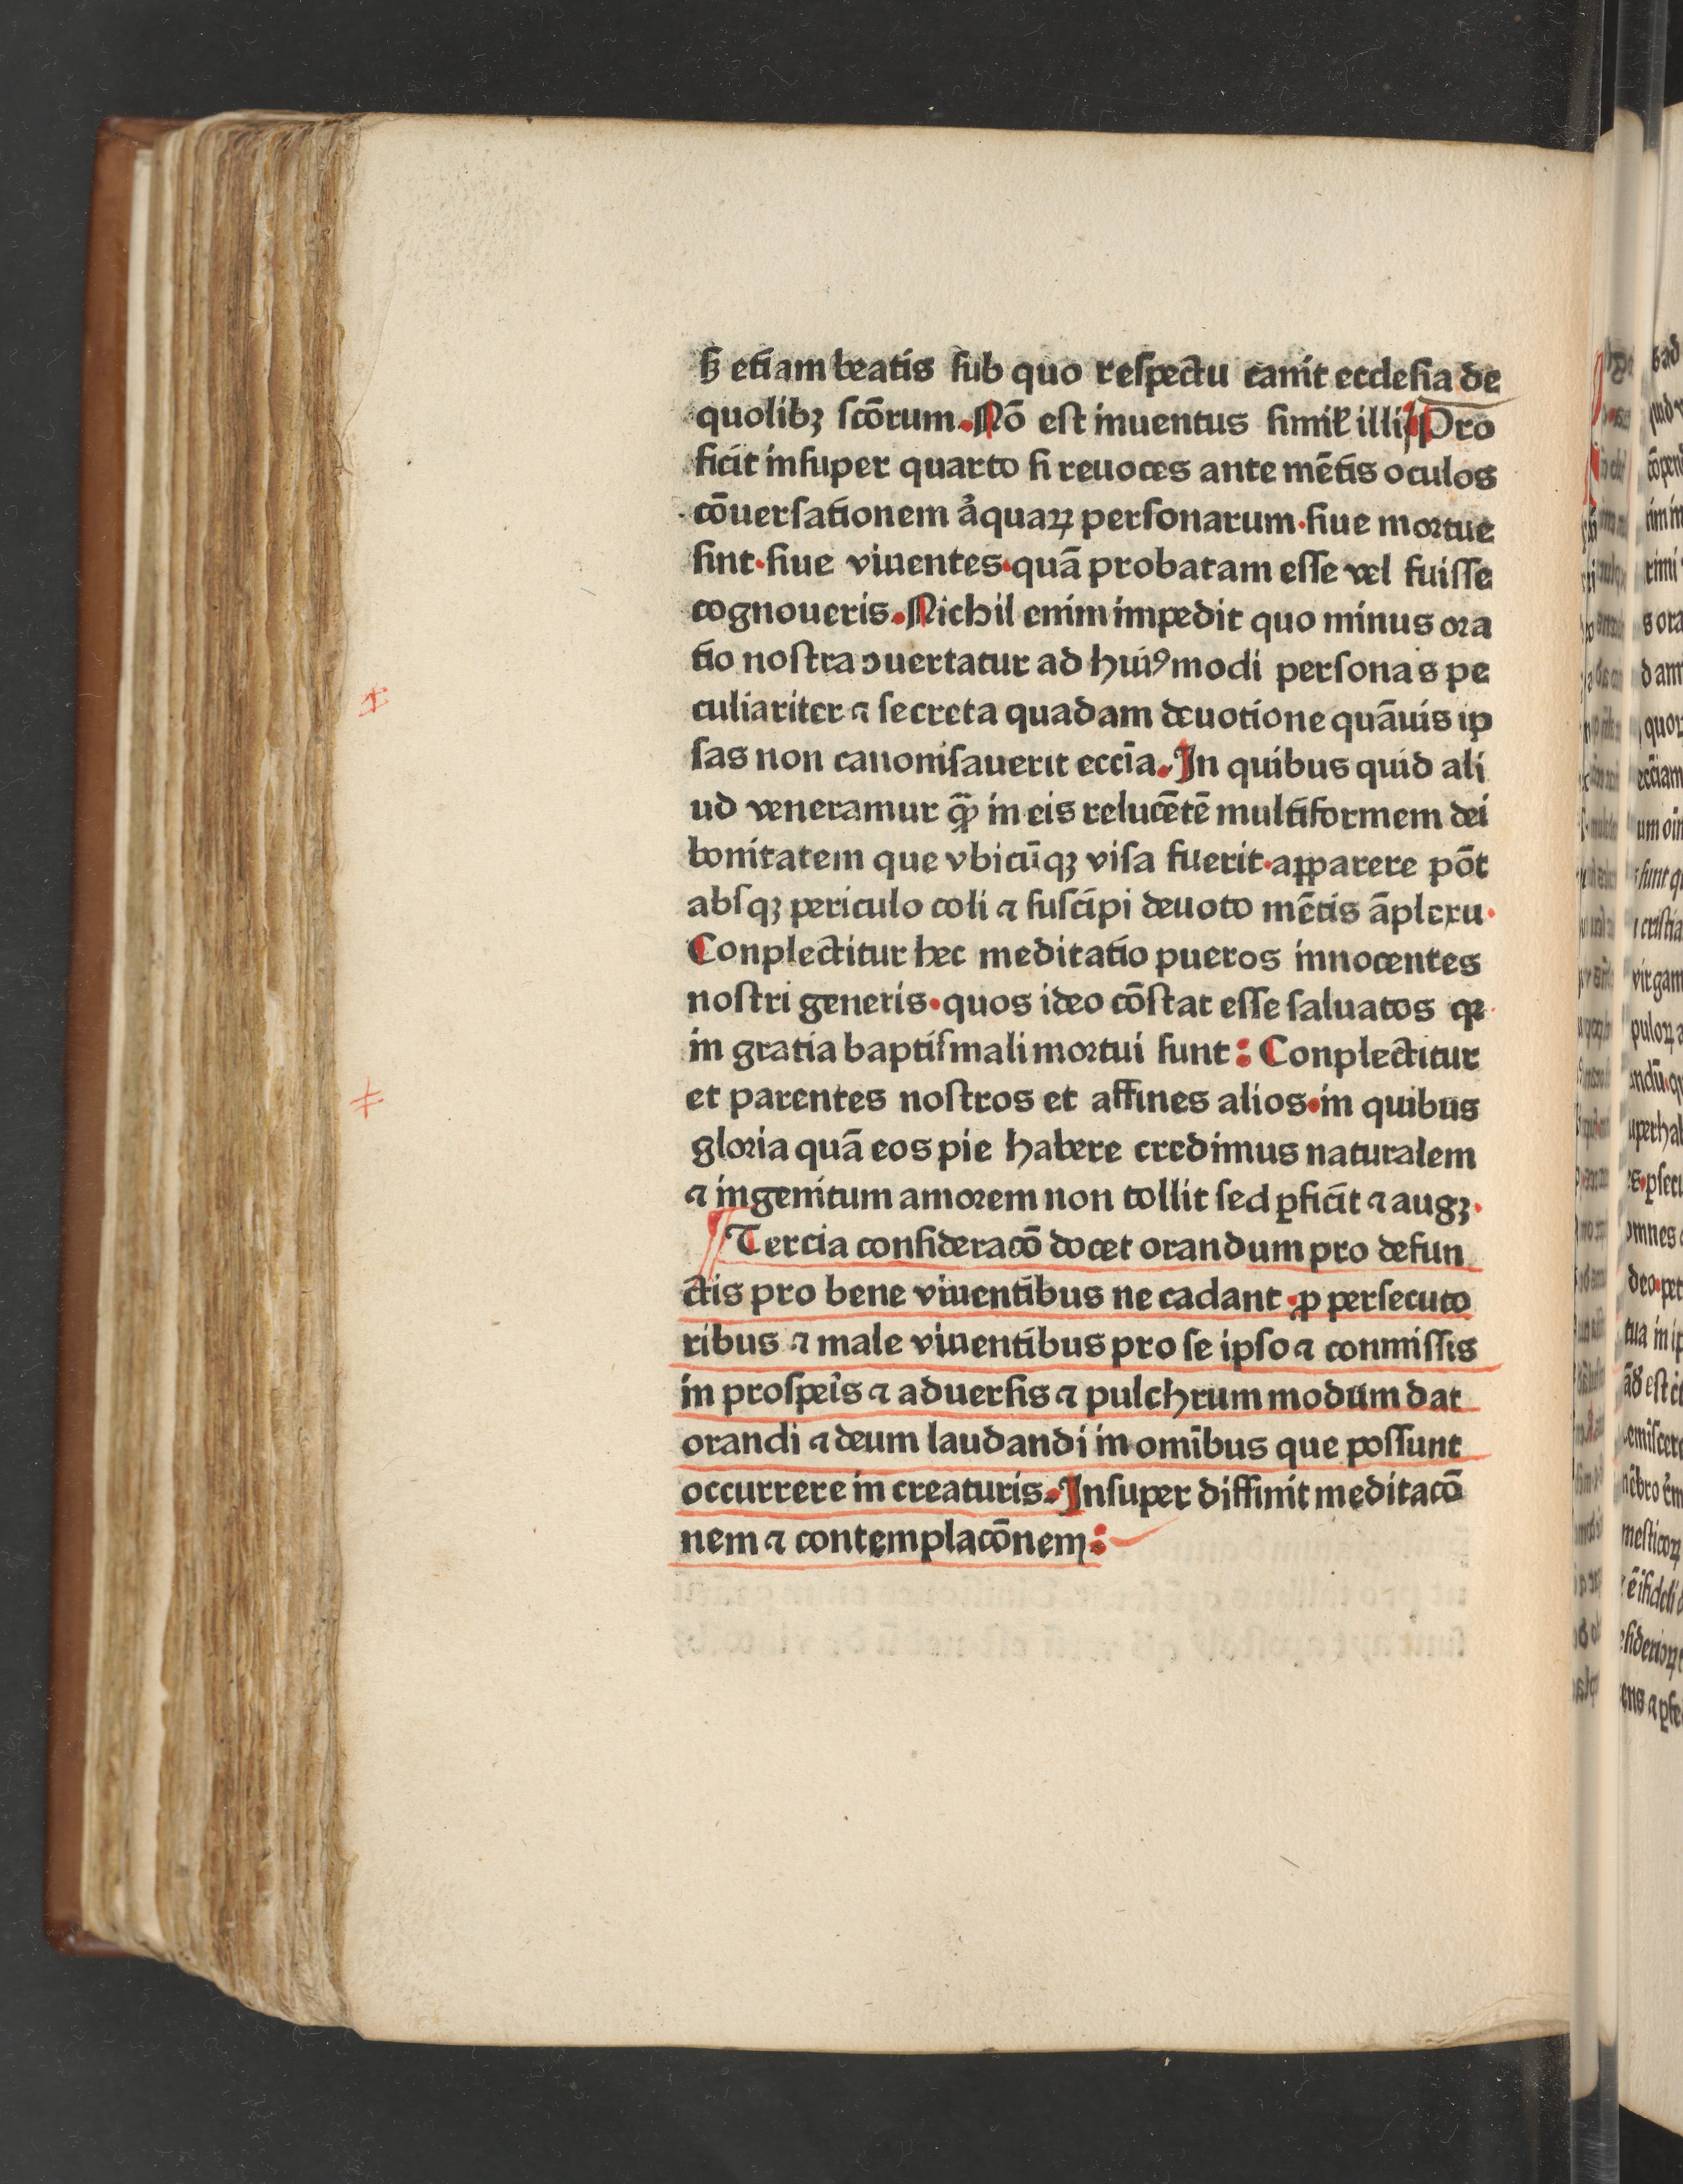 sꝫ etiam beatis sub quo respectu canit ecclesia de
quolibꝫ scōrum. Nō est inuentus simiꝉ illi Pro
ficit insuper quarto si reuoces ante mētis oculos
cōuersationem aͥquaꝝ personarum·siue mortue
sint·siue viuentes·quā probatam esse vel fuisse
cognoueris. Nichil enim impedit quo minus ora
tio nostra ↄuertatur ad huiꝰmodi personas pe
culiariter ⁊ secreta quadam deuotione quāuis ip
sas non canonisauerit eccīa. In quibus quid ali
ud veneramur qͣꝫ in eis relucētē multiformem dei
bonitatem que vbicūqꝫ visa fuerit·apparere pōt
absqꝫ periculo coli ⁊ suscipi deuoto mētis āplexu·
Conplectitur hec meditatio pueros innocentes
nostri generis·quos ideo cōstat esse saluatos qꝛ
in gratia baptismali mortui sunt: Conplectitur
et parentes nostros et affines alios·in quibus
gloria quā eos pie habere credimus naturalem
⁊ ingenitum amorem non tollit sed ꝑficit ⁊ augꝫ·
Tercia consideracō docet orandum pro defun
ctis pro bene viuentibus ne cadant·ꝓ persecuto
ribus ⁊ male viuentibus pro se ipso ⁊ conmissis
in prosꝑis ⁊ aduersis ⁊ pulchrum modum dat
orandi ⁊ deum laudandi in omībus que possunt
occurrere in creaturis. Insuper diffinit meditacō
nem ⁊ contemplacōnem: